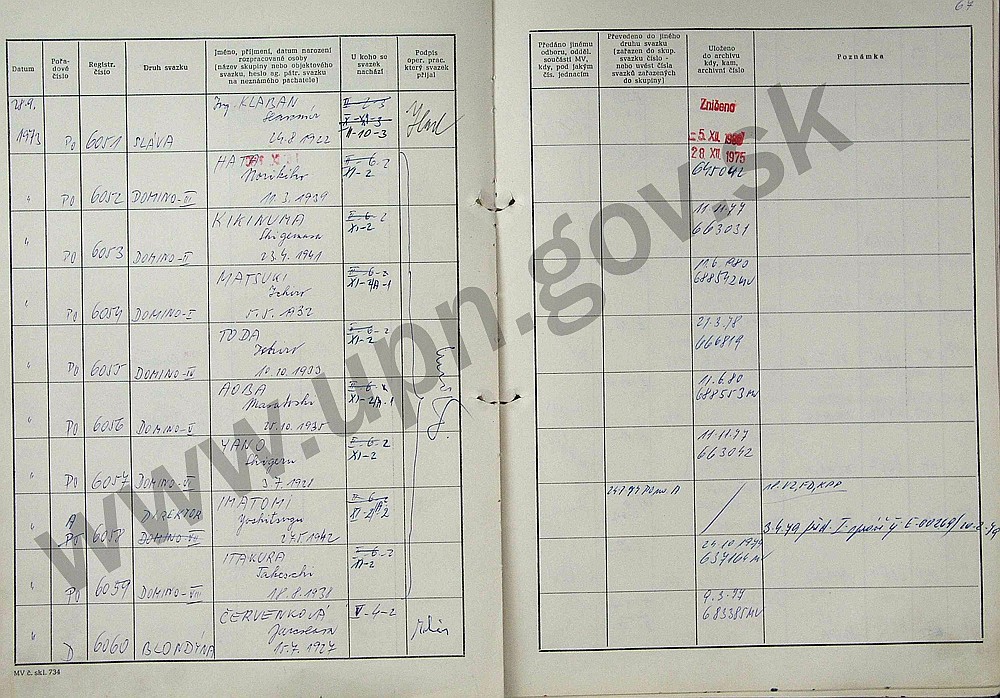 67
Datum
Pořa-
dové
číslo
Registr.
číslo
Druh svazku
Jméno, příjmení, datum narození
rozpracované osoby
(název skupiny nebo objektového
svazku, heslo ag. pátr. svazku
na neznámého pachatele)
U koho se
svazek
nachází
Podpis
oper. prac.
který svazek
přijal
Předáno jinému
odboru, odděl.
součásti MV,
kdy, pod jakým
čís. jednacím
Převedeno do jiného
druhu svazku
(zařazen do skup.
svazku číslo -
nebo vèst čísla
svazků zařazených
do skupiny)
Uloženo
do archivu
kdy, kam,
archivní číslo
Poznámka
28.9.
1973 Po 6051 SLÁVA
Ing. KLABAN
24.8.1922
II-6-3
X-XI-3
II-10-3
Zničeno
-5. XII.
28 XII. 1975
" Po 6052 DOMINO-III
HATA
Norihiko
10.3.1939
II-6-2
XI-2
645042
" Po 6053 DOMINO-II
KIKINUMA
Shigemasa
23.4.1941
II-6-2
XI-2
11.11.77
663031
" Po 6054 DOMINO-I
MATSUKI
5.5.1932
II-6-2
XI-2/A-1
11.6.1980
688542 MV
" Po 6055 DOMINO-IV
TODA
10.10.1933
II-6-2
XI-2
21.3.78
666819
" Po 6056 DOMINO-V
AOBA
Masatoshi
25.10.1935
II-6-2
XI-2/A-1
11.6.80
688553 MV
" Po 6057 DOMINO-VI
YANO
Shigeru
3.7.1928
II-6-2
XI-2
11.11.77
663042
" A
Po 6058 DIREKTOR
DOMINO-VII
IMATOMI
Yoshitsugu
27.5.1942
II-6-2
XI-2/A-2
" Po 6059 DOMINO-VIII
ITAKURA
Takeschi
18.8.1938
II-6-2
XI-2
24.10.1975
637164 MV
" D 6060 BLONDÝNA
ČERVENKOVÁ
Jaroslava
15.7.1927
V-4-2
9.3.79
683385 MV
MV č. skl. 734
www.upn.gov.sk